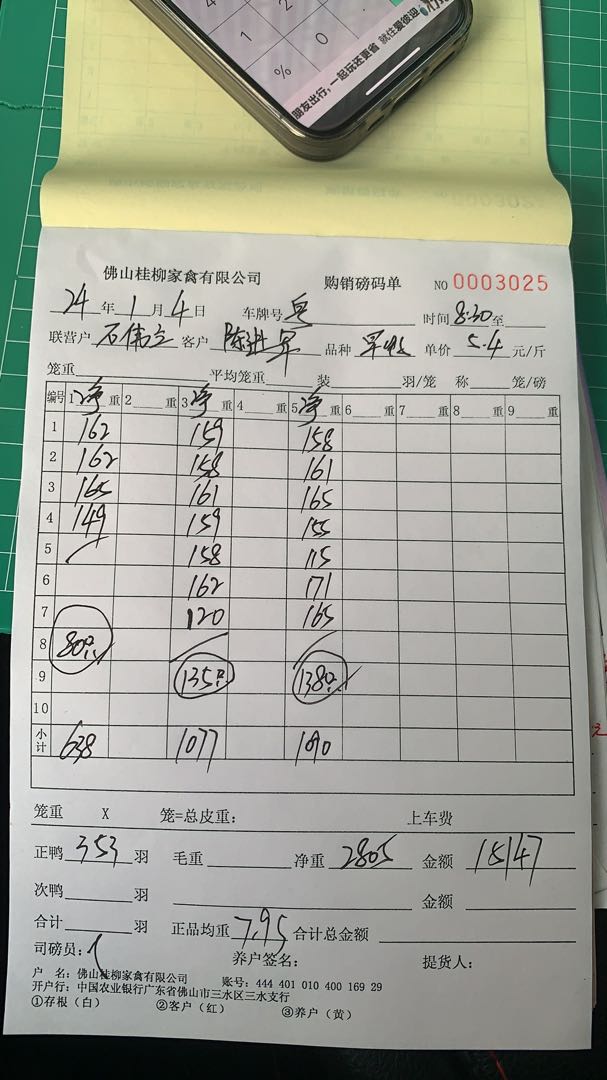 朋友出行，一起玩还更省 就住爱彼迎
4
1
2
%
0
佛山桂柳家禽有限公司 购销磅码单 NO 0003025
24 年 1 月 4 日 车牌号 时间 8:30 至
联营户 石伟立 客户 陈进军 品种 单价 5.4 元/斤
笼重 平均笼重 装 羽/笼 称 笼/磅
编号 1 净 重 2 重 3 净 重 4 重 5 净 重 6 重 7 重 8 重 9 重
1 162 159 158
2 162 158 161
3 165 161 165
4 149 159 155
5 158 115
6 162 171
7 120 165
8 80只
9 135只 138只
10
小计 638 1077 1090
笼重 X 笼=总皮重： 上车费
正鸭 353 羽 毛重 净重 2805 金额 15147
次鸭 羽 金额
合计 羽 正品均重 7.95 合计总金额
司磅员： 养户签名： 提货人：
户 名：佛山桂柳家禽有限公司 账号：444 401 010 400 169 29
开户行：中国农业银行广东省佛山市三水区三水支行
①存根（白） ②客户（红） ③养户（黄）